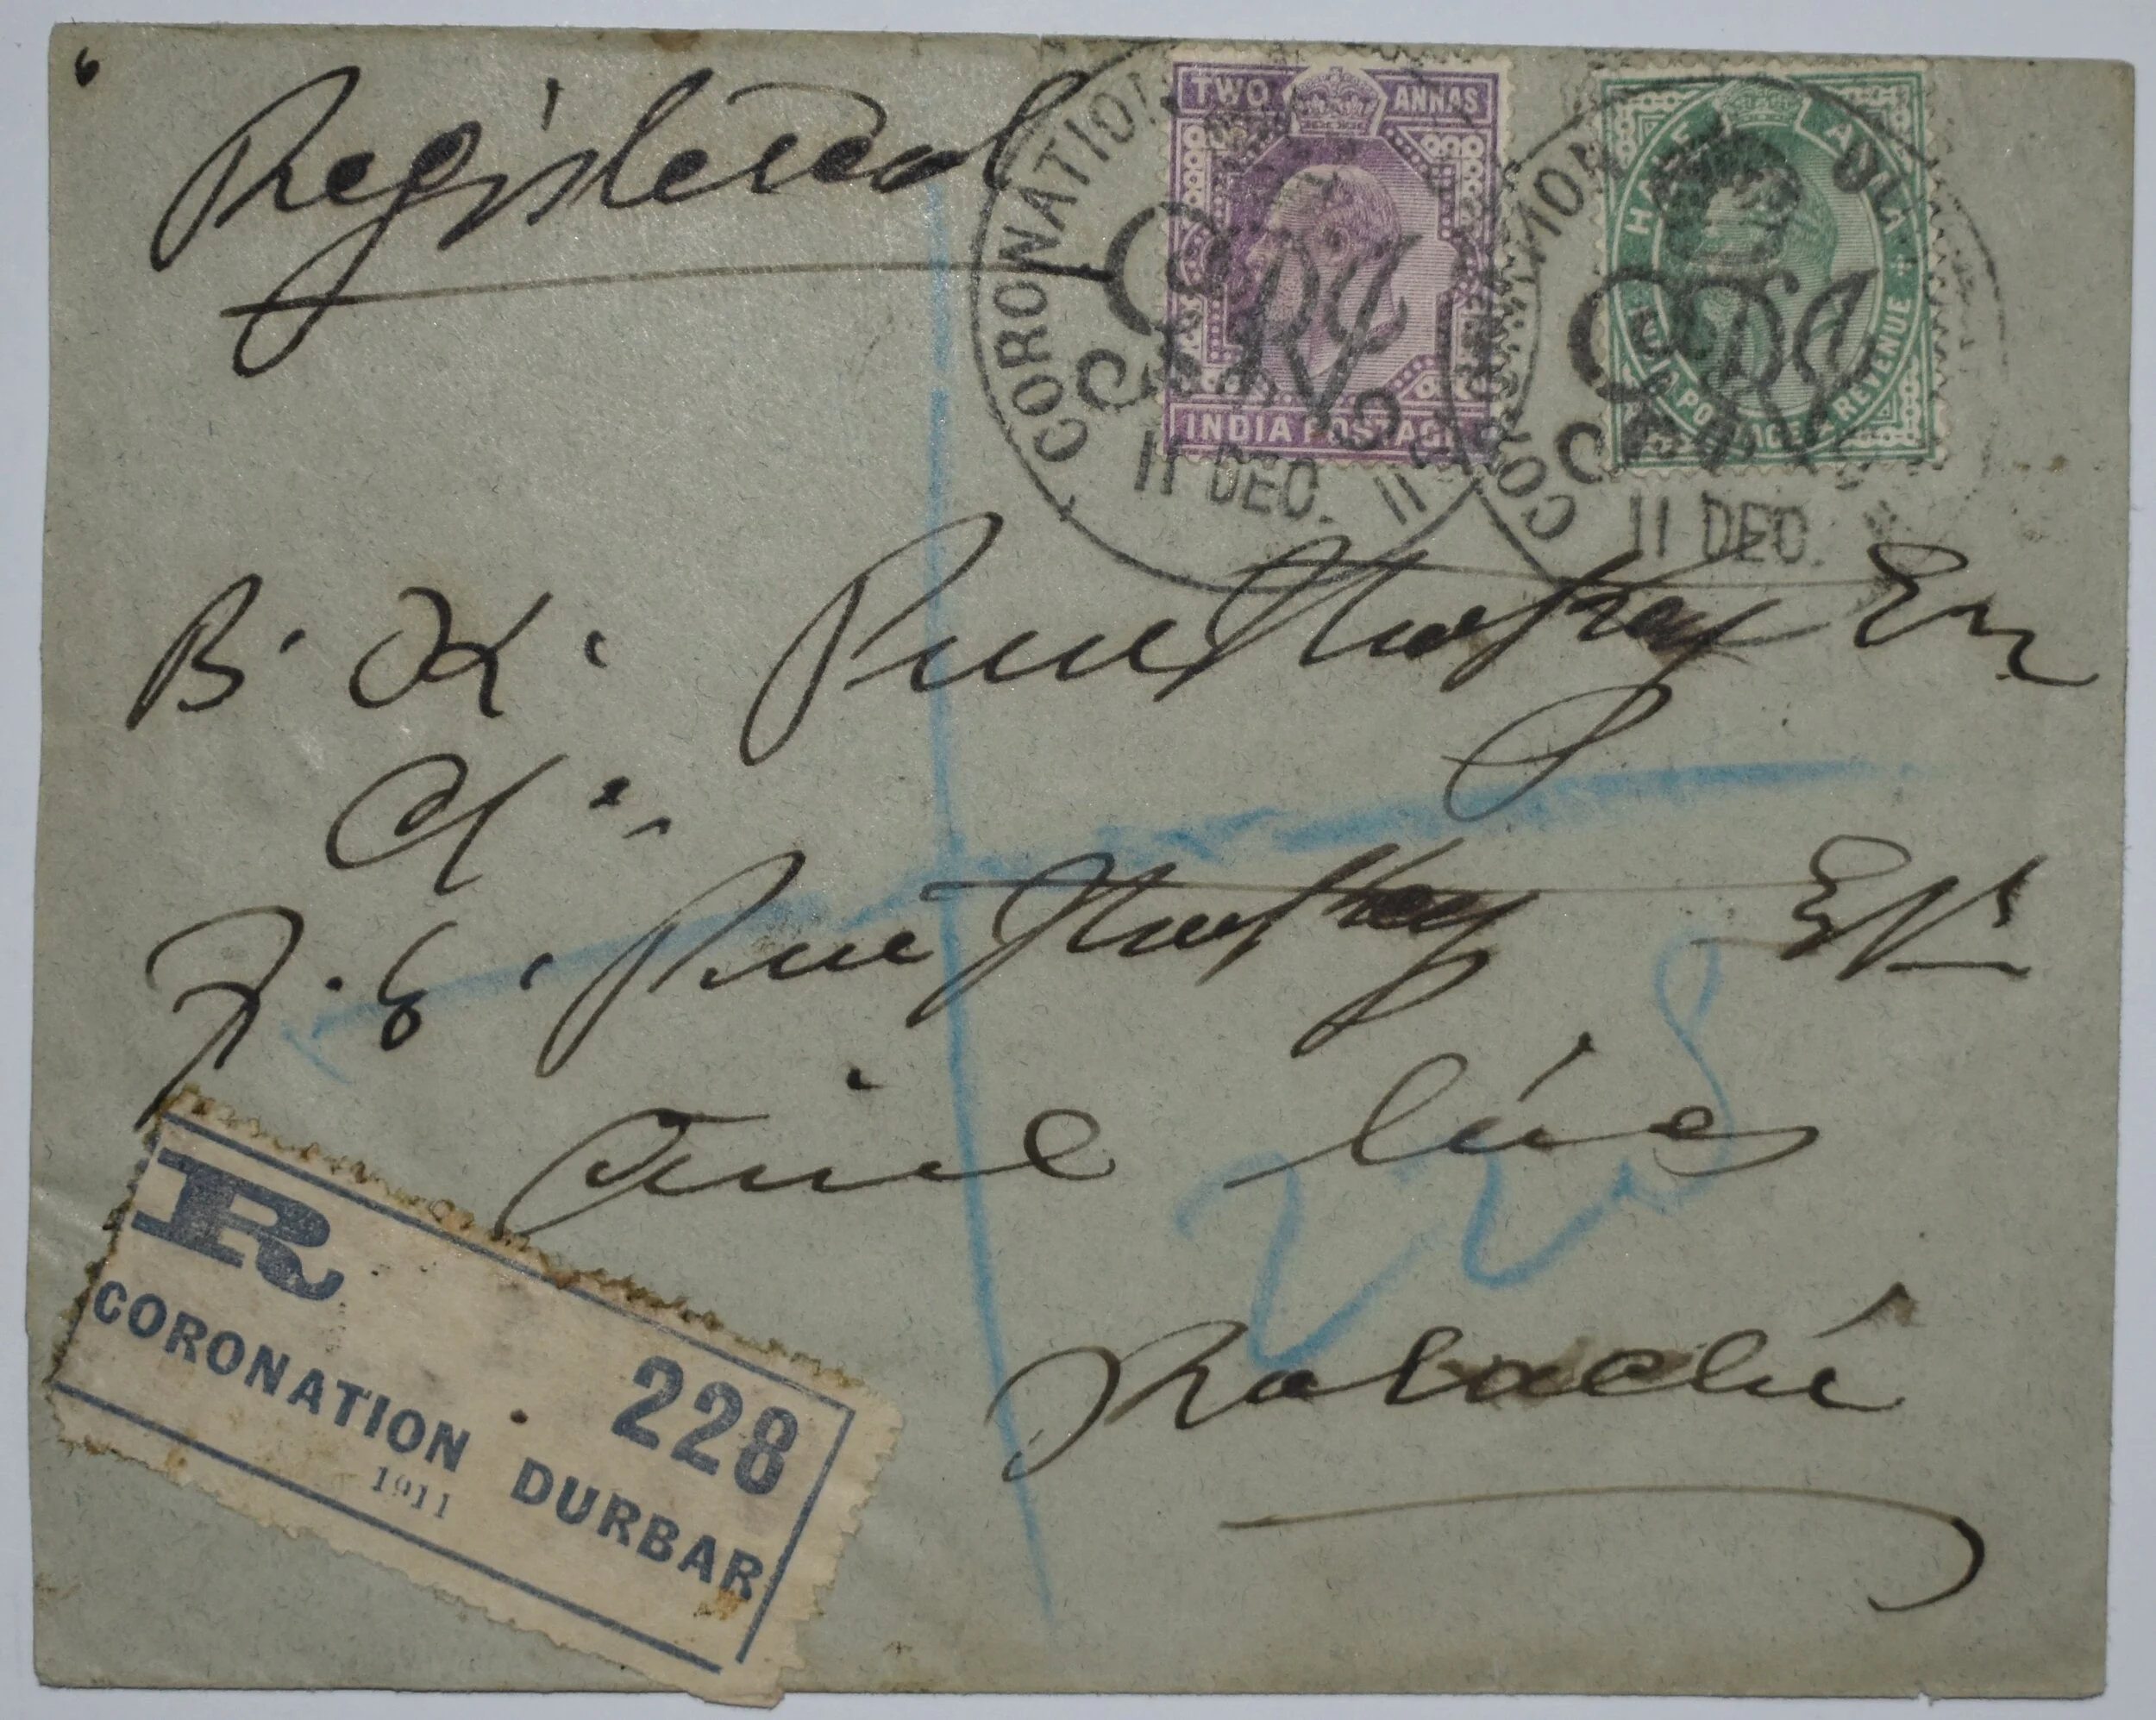 Registered
TWO ANNAS
INDIA POSTAGE
HALF ANNA
INDIA POSTAGE & REVENUE
CORONATION
11 DEC. 11
11 DEC.
B. K. Punthakey Esq
C/o
F. E. Punthakey Esqr
Civil Lines
Karachi
228
R
228
CORONATION DURBAR
1911